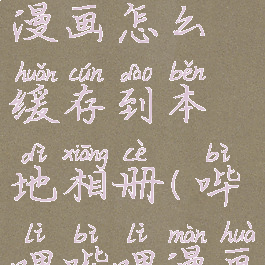 漫画怎么
huǎn cún dào běn
缓存到本
dì xiāng cè bì
地相册(哔
lì bì lì màn huà
哩哔哩漫画